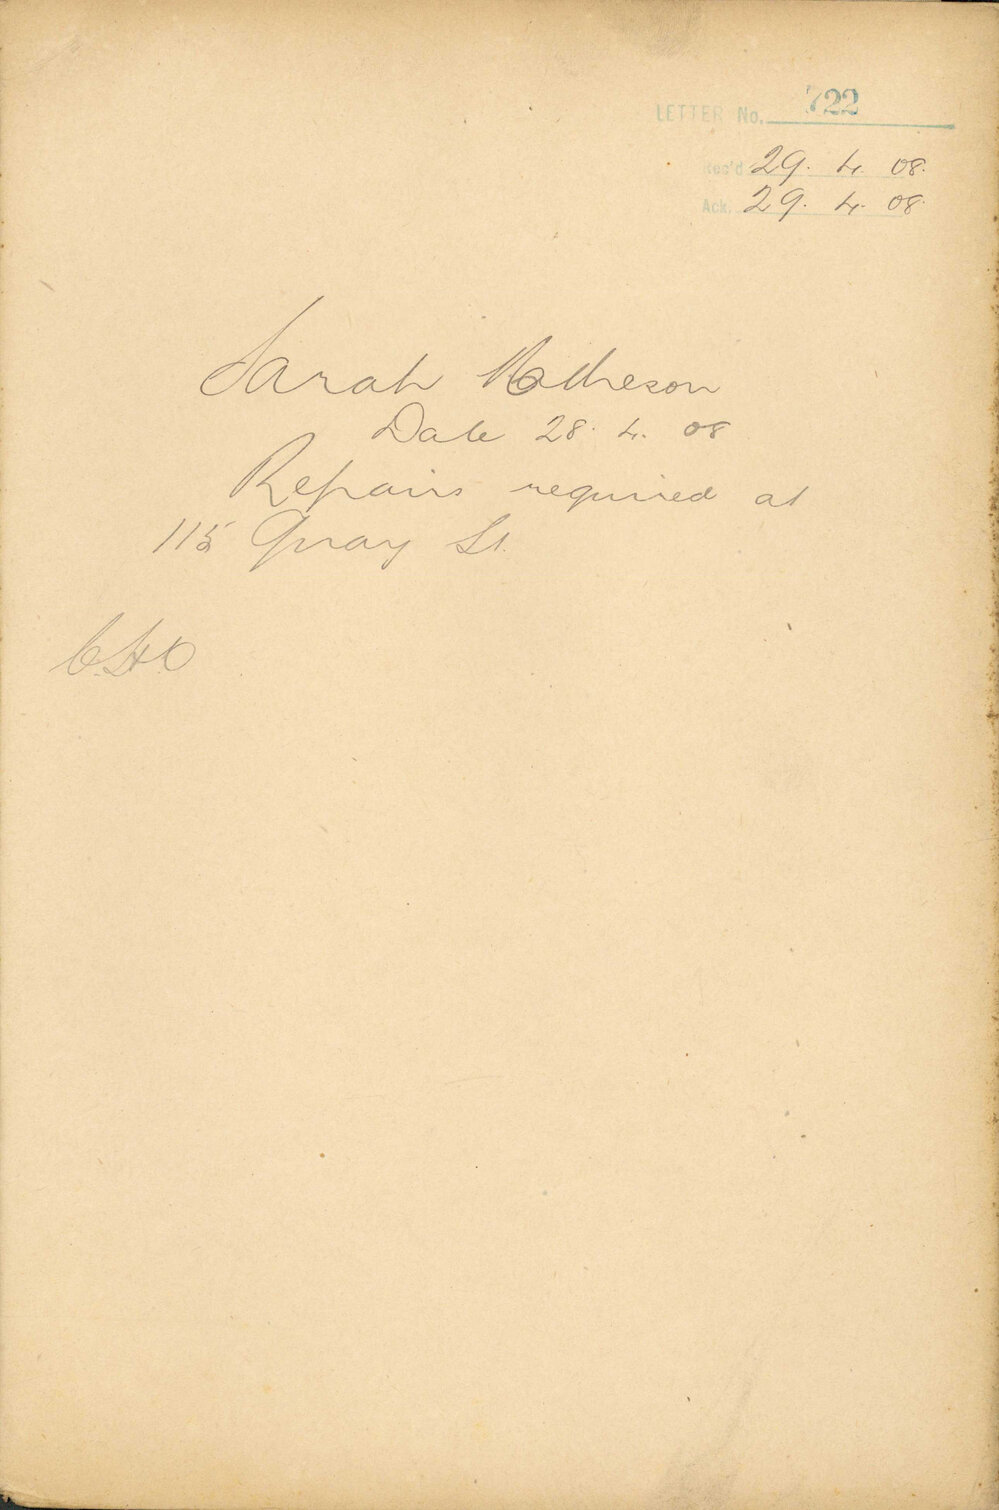 LETTER No. 722
Rec'd 29. 4. 08.
Ack. 29. 4. 08.
Sarah Matheson
Date 28. 4. 08
Repairs required at
115 Quay St.